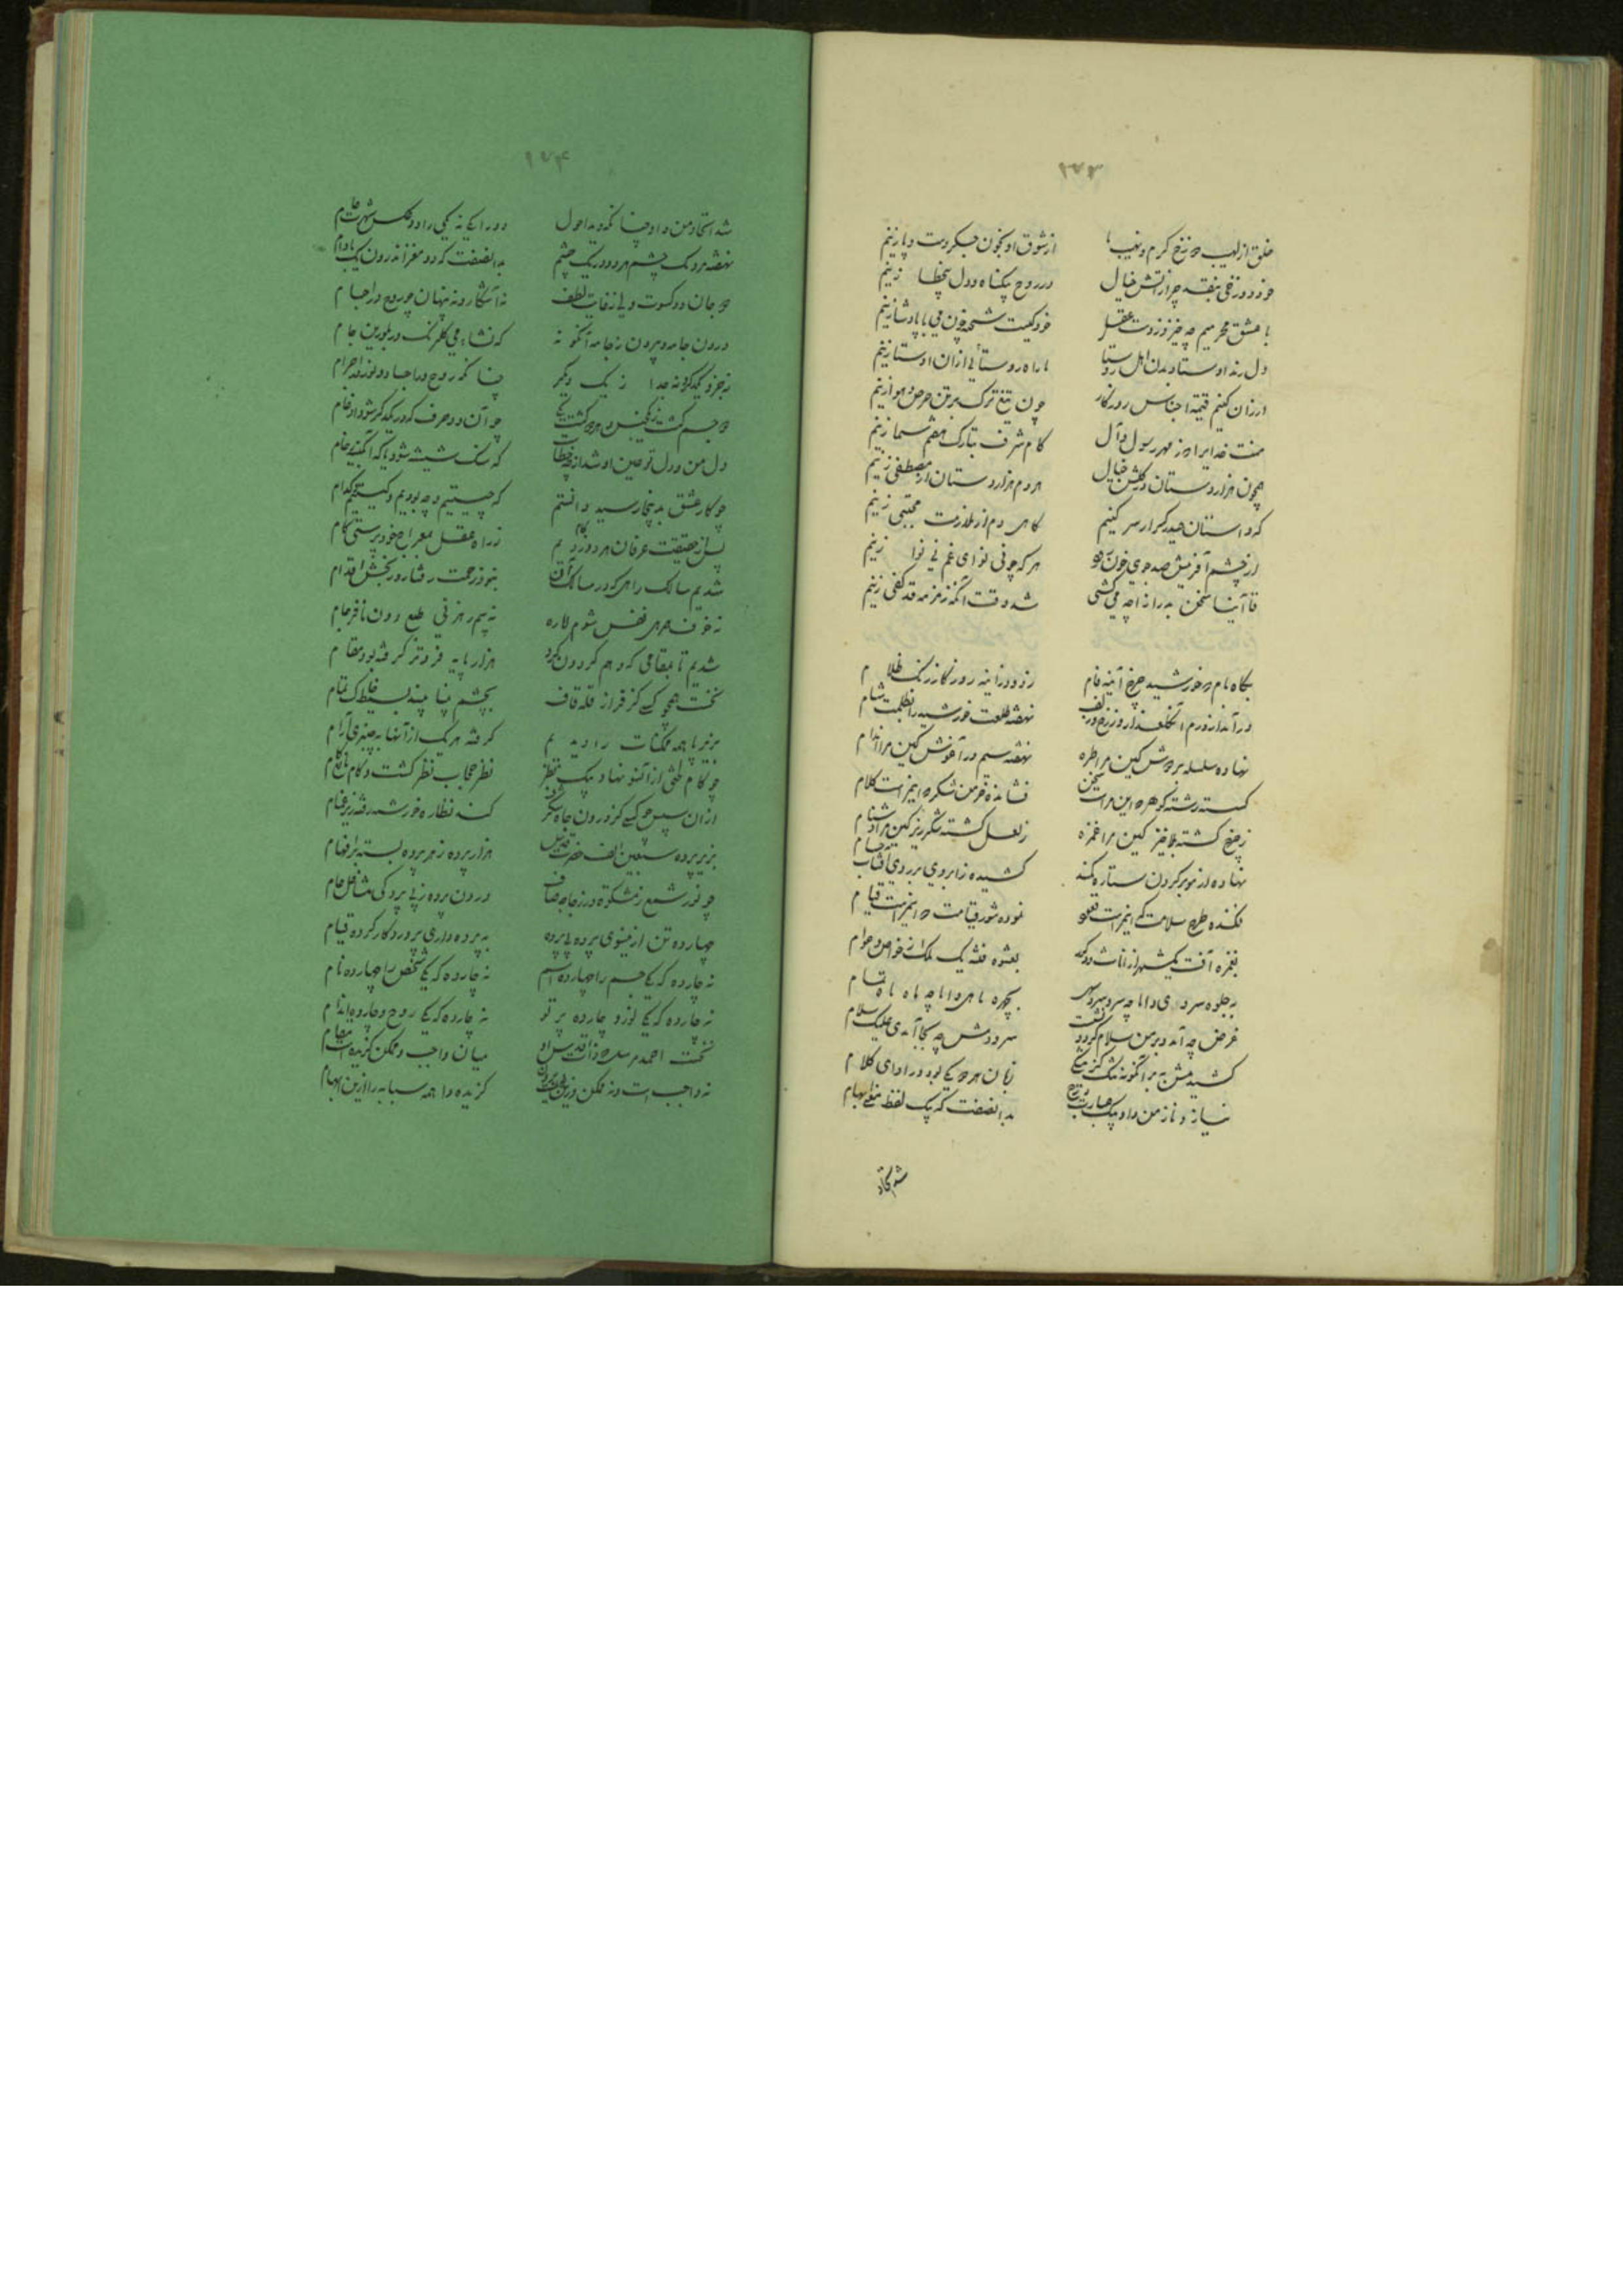 ۲۷۳
خلق از لهیب دوزخ گرم و نهیب ما از شوق او بخون جگر دست و پا زنیم
خود دوزخی بنقد چرا ز آتش خیال در روح بیگناه و دل بیخطا زنیم
با عشق محرمیم چه خیزد ز دست عقل خود کیست شحنه چون می با پادشا زنیم
دل رند اوستاد بدن اهل روستا ما راه روستائی از آن اوستا زنیم
ارزان کنیم قیمت اجناس روزگار چون تیغ ترک بر تن حرص و هوا زنیم
منت خدایرا که ز مهر رسول و آل گام شرف بتارک هفتم سما زنیم
همچون هزاردستان در گلشن خیال هر دم هزار دستان از مصطفی زنیم
که داستان حیدر کرار سر کنیم گاهی دم از ملازمت مجتبی زنیم
از چشم آفرینش صد جوی خون رود هر گه چو نی نوای غم نی نوا زنیم
قاآنیا سخن به درازا چه میکشی شد وقت آنکه زمزمه قد کفی زنیم
بگاه بام که خورشید چرخ آینه فام زدود ز آینه روزگار زنگ ظلام
در آمد از درم آن گلعذار و زرخ در زلف نهفته طلعت خورشید را بظلمت شام
نهاده سلسله بر دوش کین مرا طره نهفته سیم در آغوش کین مرا اندام
گسسته رشته گوهر که این مراست سخن فشانده خرمن شکر که اینم است کلام
ز چرخ گشته بلاخیز کین مرا غمزه ز لعل گشته شکرریز کین مرا دشنام
نهاده از مو بر گردن ستاره کمند کشیده ز ابروی بر روی آفتاب حسام
فکنده طرح سلامت که اینم است قعود نموده شور قیامت که اینم است قیام
بغمزه آفت یکشهر از اناث و ذکور بعشوه فتنه یک ملک از خواص و عوام
بجلوه سروی و اما چه سرو سرو سهی بچهره ماهی و اما چه ماه ماه تمام
غرض چه آمد و بر من سلام کرد و نشست سرودمش چه بجا آمدی علیک سلام
کشیدمش به بر آنگونه تنگ کز تنگی زبان هر دو یکی بود در ادای کلام
نیاز و ناز من و او بیک عبارت درج بدانصفت که بیک لفظ معنی ابهام
شد اتحاد
۲۷۴
شد اتحاد من و او چنانکه دید احول دو را یکی نه یکی را دو عکس شهرت عام
نهفته مردمک چشم هر دو در یک چشم بدانصفت که دو مغز اندرون یک بادام
دو جان دو کسوت ولی از غایت لطف نه آشکار و نه پنهان چو روح در اجسام
درون جامه و بیرون ز جامه آنگونه که نشاءه می گلرنگ در بلورین جام
نه جزو یکدگر و نه جدا ز یک دیگر چنانکه روح در اجساد و نور در اجرام
دو جسم گشت ز یکجنس و هر دو گشت یکی چو آن دو حرف که در یکدگر شود ادغام
دل من و دل تو عین او شد از چه خطاست که سنگ شیشه شود یا که آبگینه رخام
چو کار عشق بدینجا رسید دانستم که چیستیم و چه بودیم و کیستیم کدام
پس از حقیقت عرفان هر دو در دم ز راه عقل بمعراج خودپرستی گام
شدیم سالک راهی که در مسالک آن بنوذ زحمت رفتار و رنجش اقدام
نه خوف همرهی نفس شوم لاره نه بیم رهزنی طبع دون نافرجام
شدیم تا بمقامی که وهم گردون گرد هزار پایه فروتر گرفته بود مقام
نخست همچو کسی کز فراز قله قاف بچشم پنا بیند بسیط خاک تمام
بزیر پا همه ممکنات را دیدم گرفته هر یک از آنها به چیزی آرام
چو گام طی از آنسو نهاد پیک نظر نظر حجاب نظر گشت و گام مانع گام
از آن سپس چو کسی کز درون چاه شگرف کند نظاره خورشید رفته زیر غمام
بزیر پرده سبعین الف حضرت قدس هزار پرده ز هر پرده بسته بر افهام
چو نور شمع ز مشکوة در زجاجه صاف درون پرده ز بی پردگی مشاهل عام
چهارده تن از مینوی پرده پی پرده به پرده داری پروردگار کرده قیام
نه چارده که یکی جسم را چهارده اسم نه چارده که یکی شخص را چهارده نام
نه چارده که یکی نور و چارده پرتو نه چارده که یکی روح و چارده اندام
نخست احمد مرسل که ذات اقدس او میان واجب و ممکن گزیده است مقام
نه واجب است و نه ممکن گزیده و اما همه سبابه را ازین ابهام